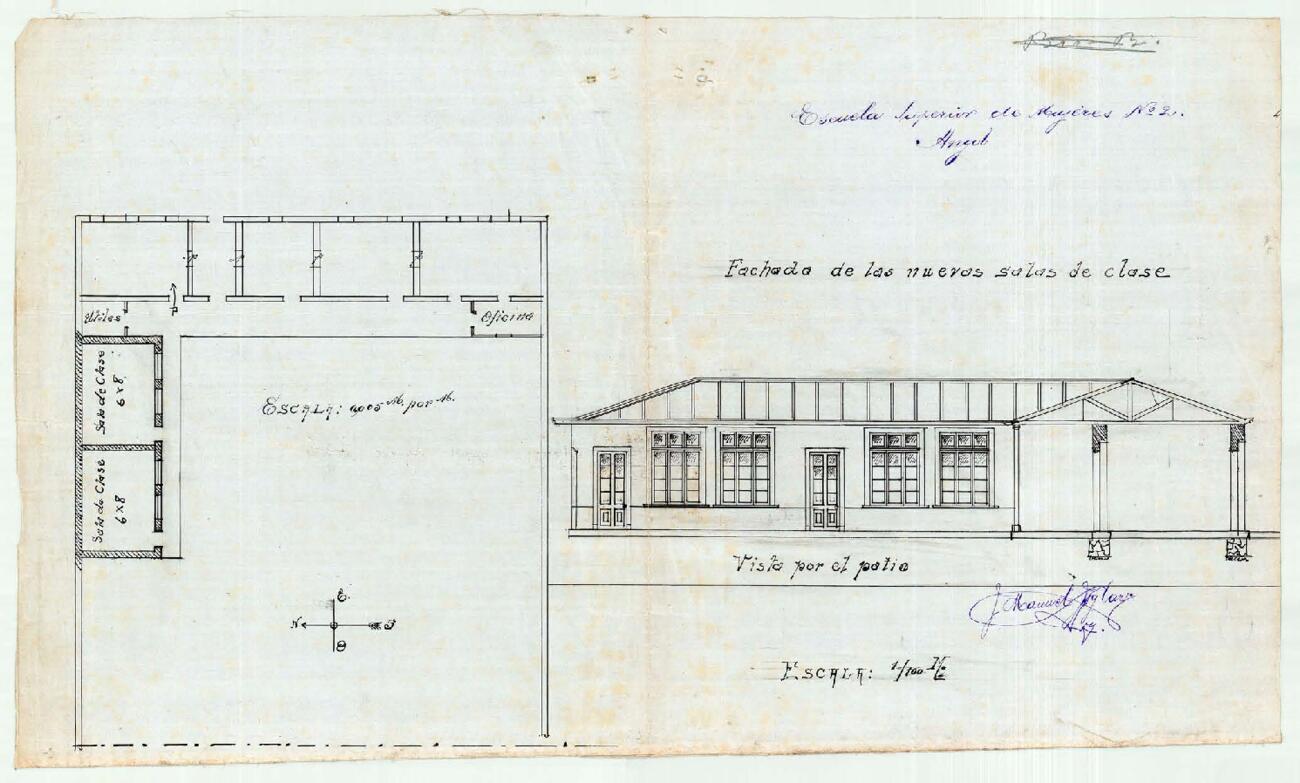 Escuela Superior de Mujeres No 2.
Angol
Fachada de las nuevas salas de clase
Utiles
P
Oficina
Sala de Clase
6 x 8
Sala de Clase
6 x 8
ESCALA: 0,005 M. por M.
Vista por el patio
E.
N
S
O
J. Manuel
ESCALA: 1/100